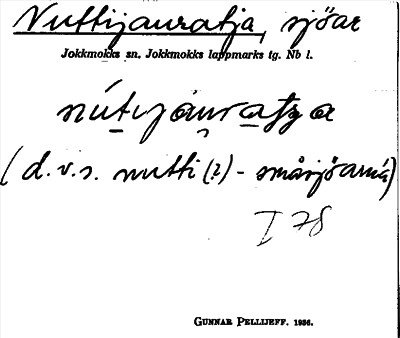 Nuttijauratja, sjöar
Jokkmokks sn. Jokkmokks lappmarks tg. Nb l.
nútijauratza
(d.v.s. nutti (?) - småsjöarna)
I 78
GUNNAR PELLIJEFF. 1956.